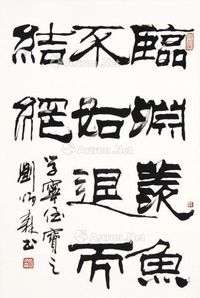 臨淵羨魚
不如退而
結網
劉炳森書
Artron.Net